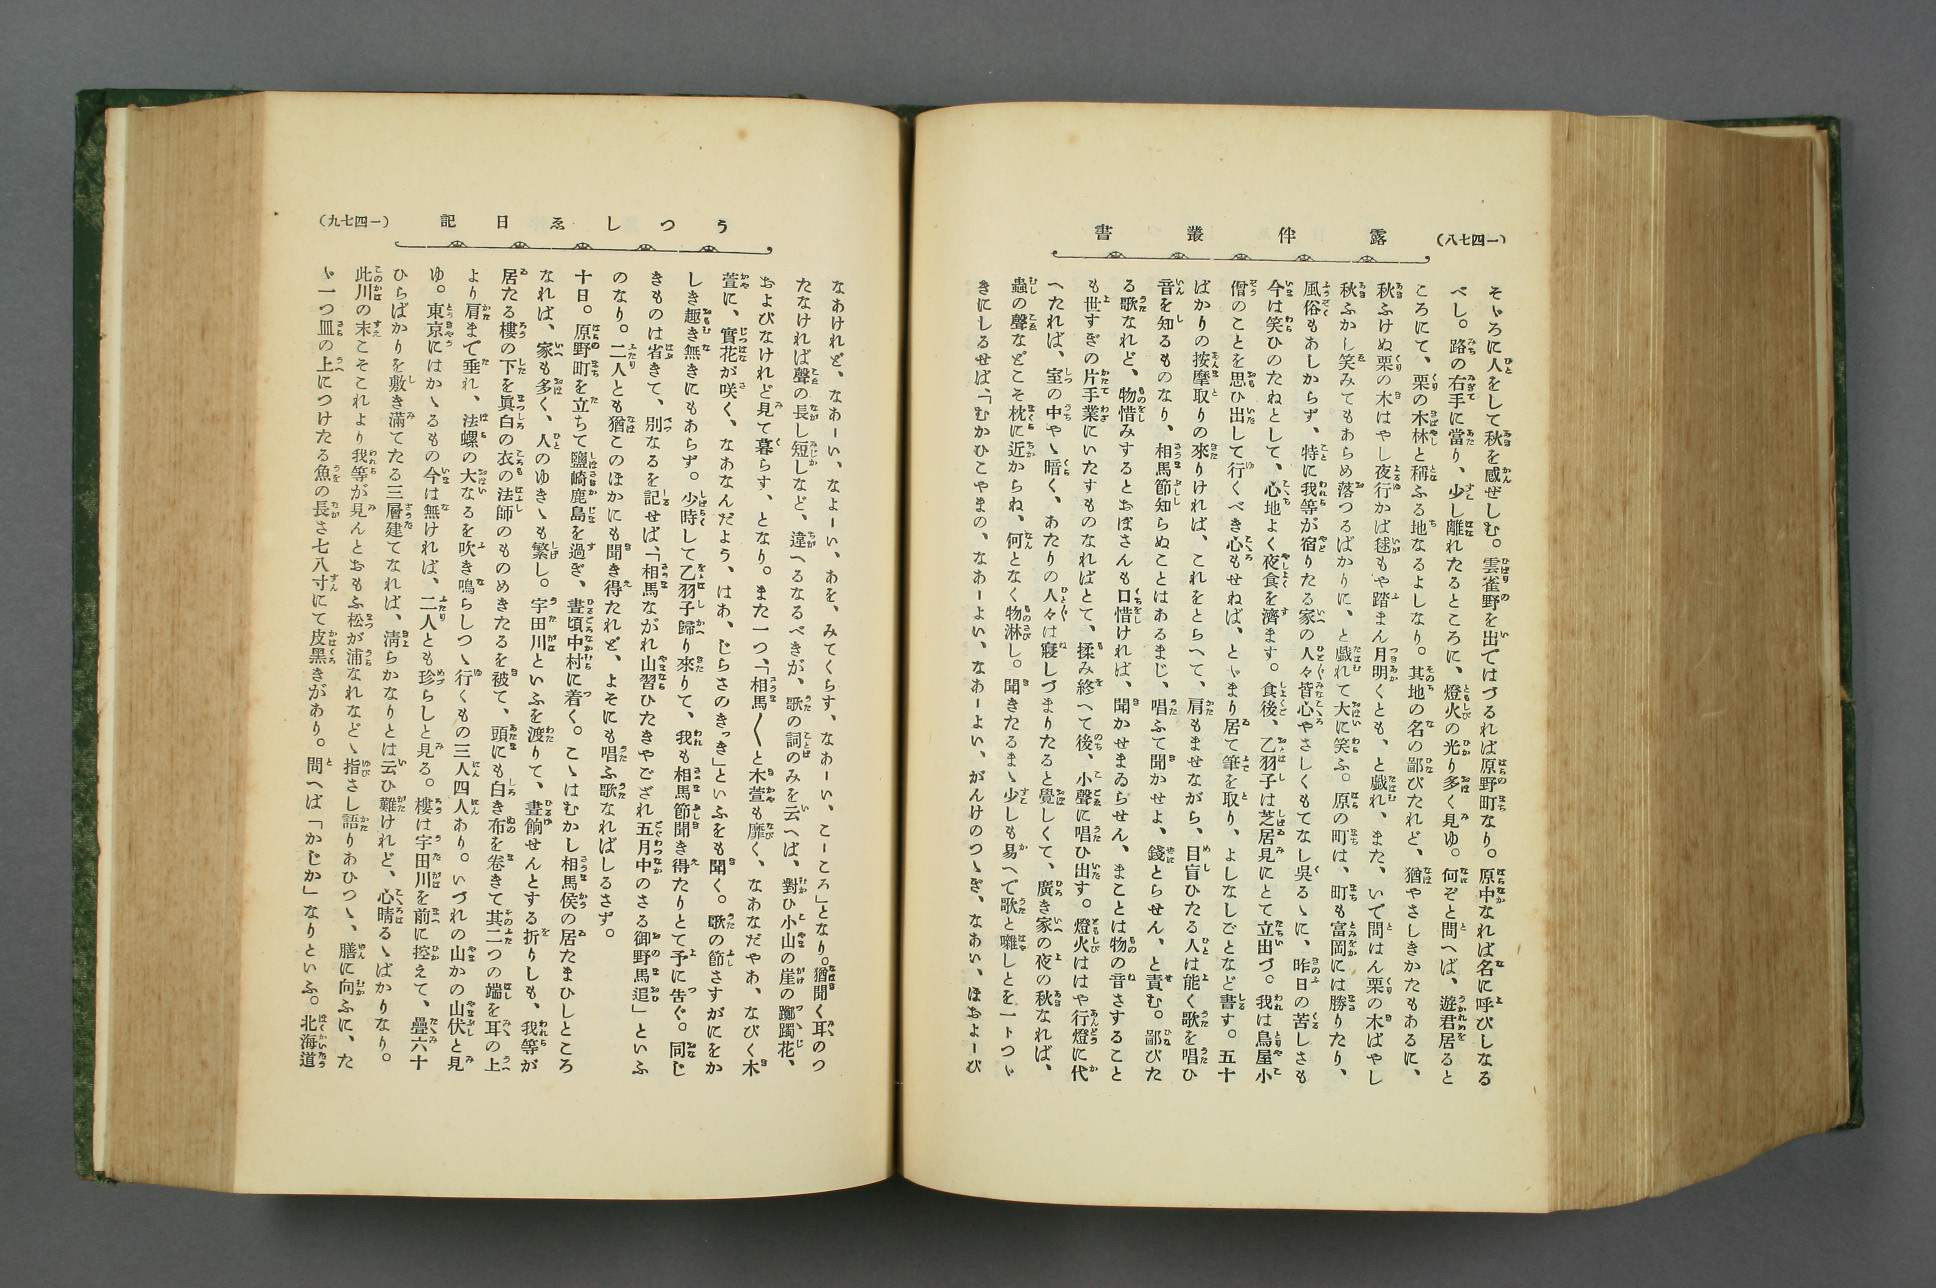 (一四七八)
露伴叢書
そゞろに人をして秋を感ぜしむ。雲雀野を出ではづるれば原野町なり。原中なれば名に呼びしなる
べし。路の右手に當り、少し離れたるところに、燈火の光り多く見ゆ。何ぞと問へば、遊君居ると
ころにて、栗の木林と稱ふる地なるよしなり。其地の名の鄙びたれど、猶やさしきかたもあるに、
秋ふけぬ栗の木はやし夜行かば毬もや踏まん月明くとも、と戯れ、また、いで問はん栗の木ばやし
秋ふかし笑みてもあらめ落つるばかりに、と戯れて大に笑ふ。原の町は、町も富岡には勝りたり、
風俗もあしからず、特に我等が宿りたる家の人々皆心やさしくもてなし吳るゝに、昨日の苦しさも
今は笑ひのたねとして、心地よく夜食を濟ます。食後、乙羽子は芝居見にとて立出づ。我は鳥屋小
僧のことを思ひ出して行くべき心もせねば、とゞまり居て筆を取り、よしなしごとなど書す。五十
ばかりの按摩取りの來りければ、これをとらへて、肩もませながら、目盲ひたる人は能く歌を唱ひ
音を知るものなり、相馬節知らぬことはあるまじ、唱ふて聞かせよ、錢とらせん、と責む。鄙びた
る歌なれど、物惜みするとおぼさんも口惜ければ、聞かせまゐらせん、まことは物の音さすること
も世すぎの片手業にいたすものなればとて、揉み終へて後、小聲に唱ひ出す。燈火ははや行燈に代
へたれば、室の中やゝ暗く、あたりの人々は寢しづまりたると覺しくて、廣き家の夜の秋なれば、
蟲の聲などこそ枕に近からね、何となく物淋し。聞きたるまゝ少しも易へで歌と囃しとを一トつゞ
きにしるせば、「むかひこやまの、なあーよい、なあーよい、がんけのつゝぎ、なあい、ほおよーび
(一四七九)
うつしゑ日記
なあけれど、なあーい、なよーい、あを、みてくらす、なあーい、こーころ」となり。猶聞く耳のつ
たなければ聲の長し短しなど、違へるなるべきが、歌の詞のみを云へば、對ひ小山の崖の躑躅花、
およびなけれど見て暮らす、となり。また一つ、「相馬〱と木萱も靡く、なあなだやあ、なびく木
萱に、實花が咲く、なあなんだよう、はあ、じらさのきっき」といふをも聞く。歌の節さすがにをか
しき趣き無きにもあらず。少時して乙羽子歸り來りて、我も相馬節聞き得たりとて予に告ぐ。同じ
きものは省きて、別なるを記せば、「相馬ながれ山習ひたきやござれ五月中のさる御野馬追」といふ
のなり。二人とも猶このほかにも聞き得たれど、よそにも唱ふ歌なればしるさず。
十日。原野町を立ちて鹽崎鹿島を過ぎ、晝頃中村に着く。こゝはむかし相馬侯の居たまひしところ
なれば、家も多く、人のゆきゝも繁し。宇田川といふを渡りて、晝餉せんとする折りしも、我等が
居たる樓の下を眞白の衣の法師のものめきたるを被て、頭にも白き布を卷きて其二つの端を耳の上
より肩まで垂れ、法螺の大なるを吹き鳴らしつゝ行くもの三人四人あり。いづれの山かの山伏と見
ゆ。東京にはかゝるもの今は無ければ、二人とも珍らしと見る。樓は宇田川を前に控えて、疊六十
ひらばかりを敷き滿てたる三層建てなれば、淸らかなりとは云ひ難けれど、心晴るゝばかりなり。
此川の末こそこれより我等が見んとおもふ松が浦なれなどゝ指さし語りあひつゝ、膳に向ふに、た
ゞ一つ皿の上につけたる魚の長さ七八寸にて皮黑きがあり。問へば「かじか」なりといふ。北海道